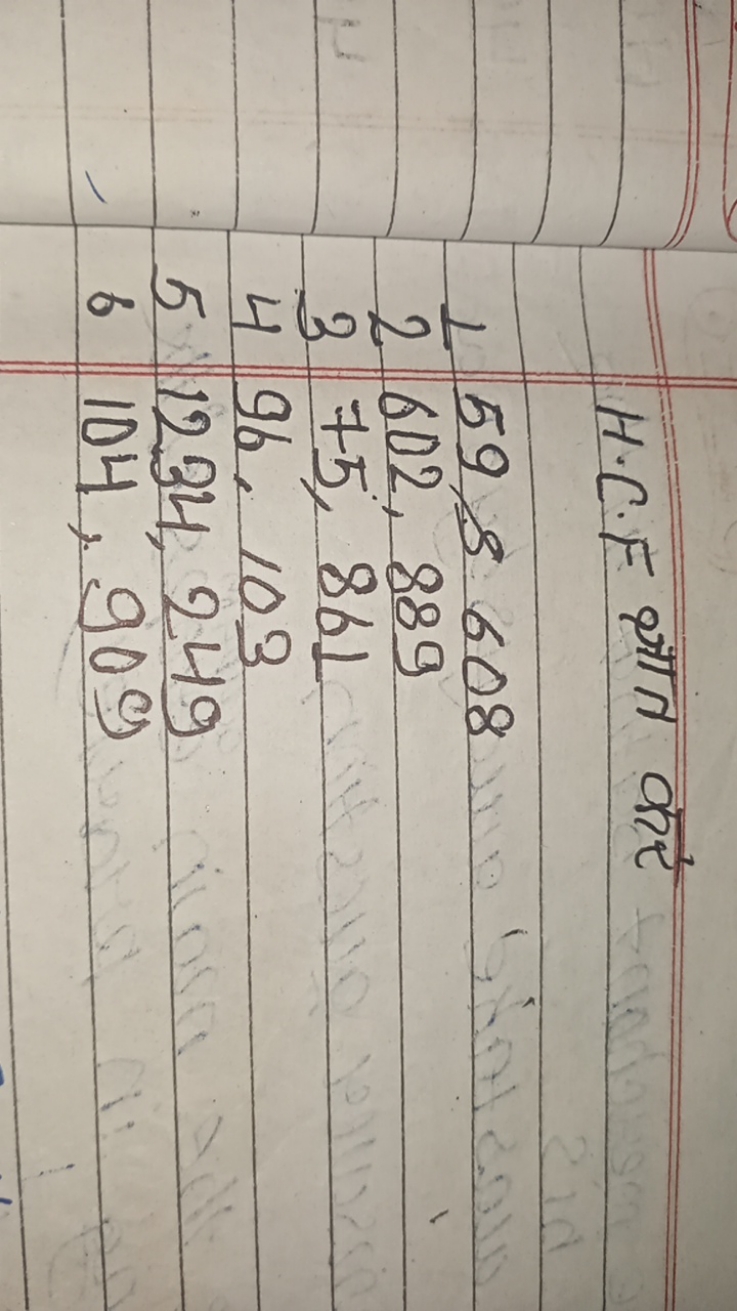 H.C.F ज्ञात करें
1 59, 608
2 602, 889
3 75, 861
4 96, 103
5 1234, 249
6 104, 909